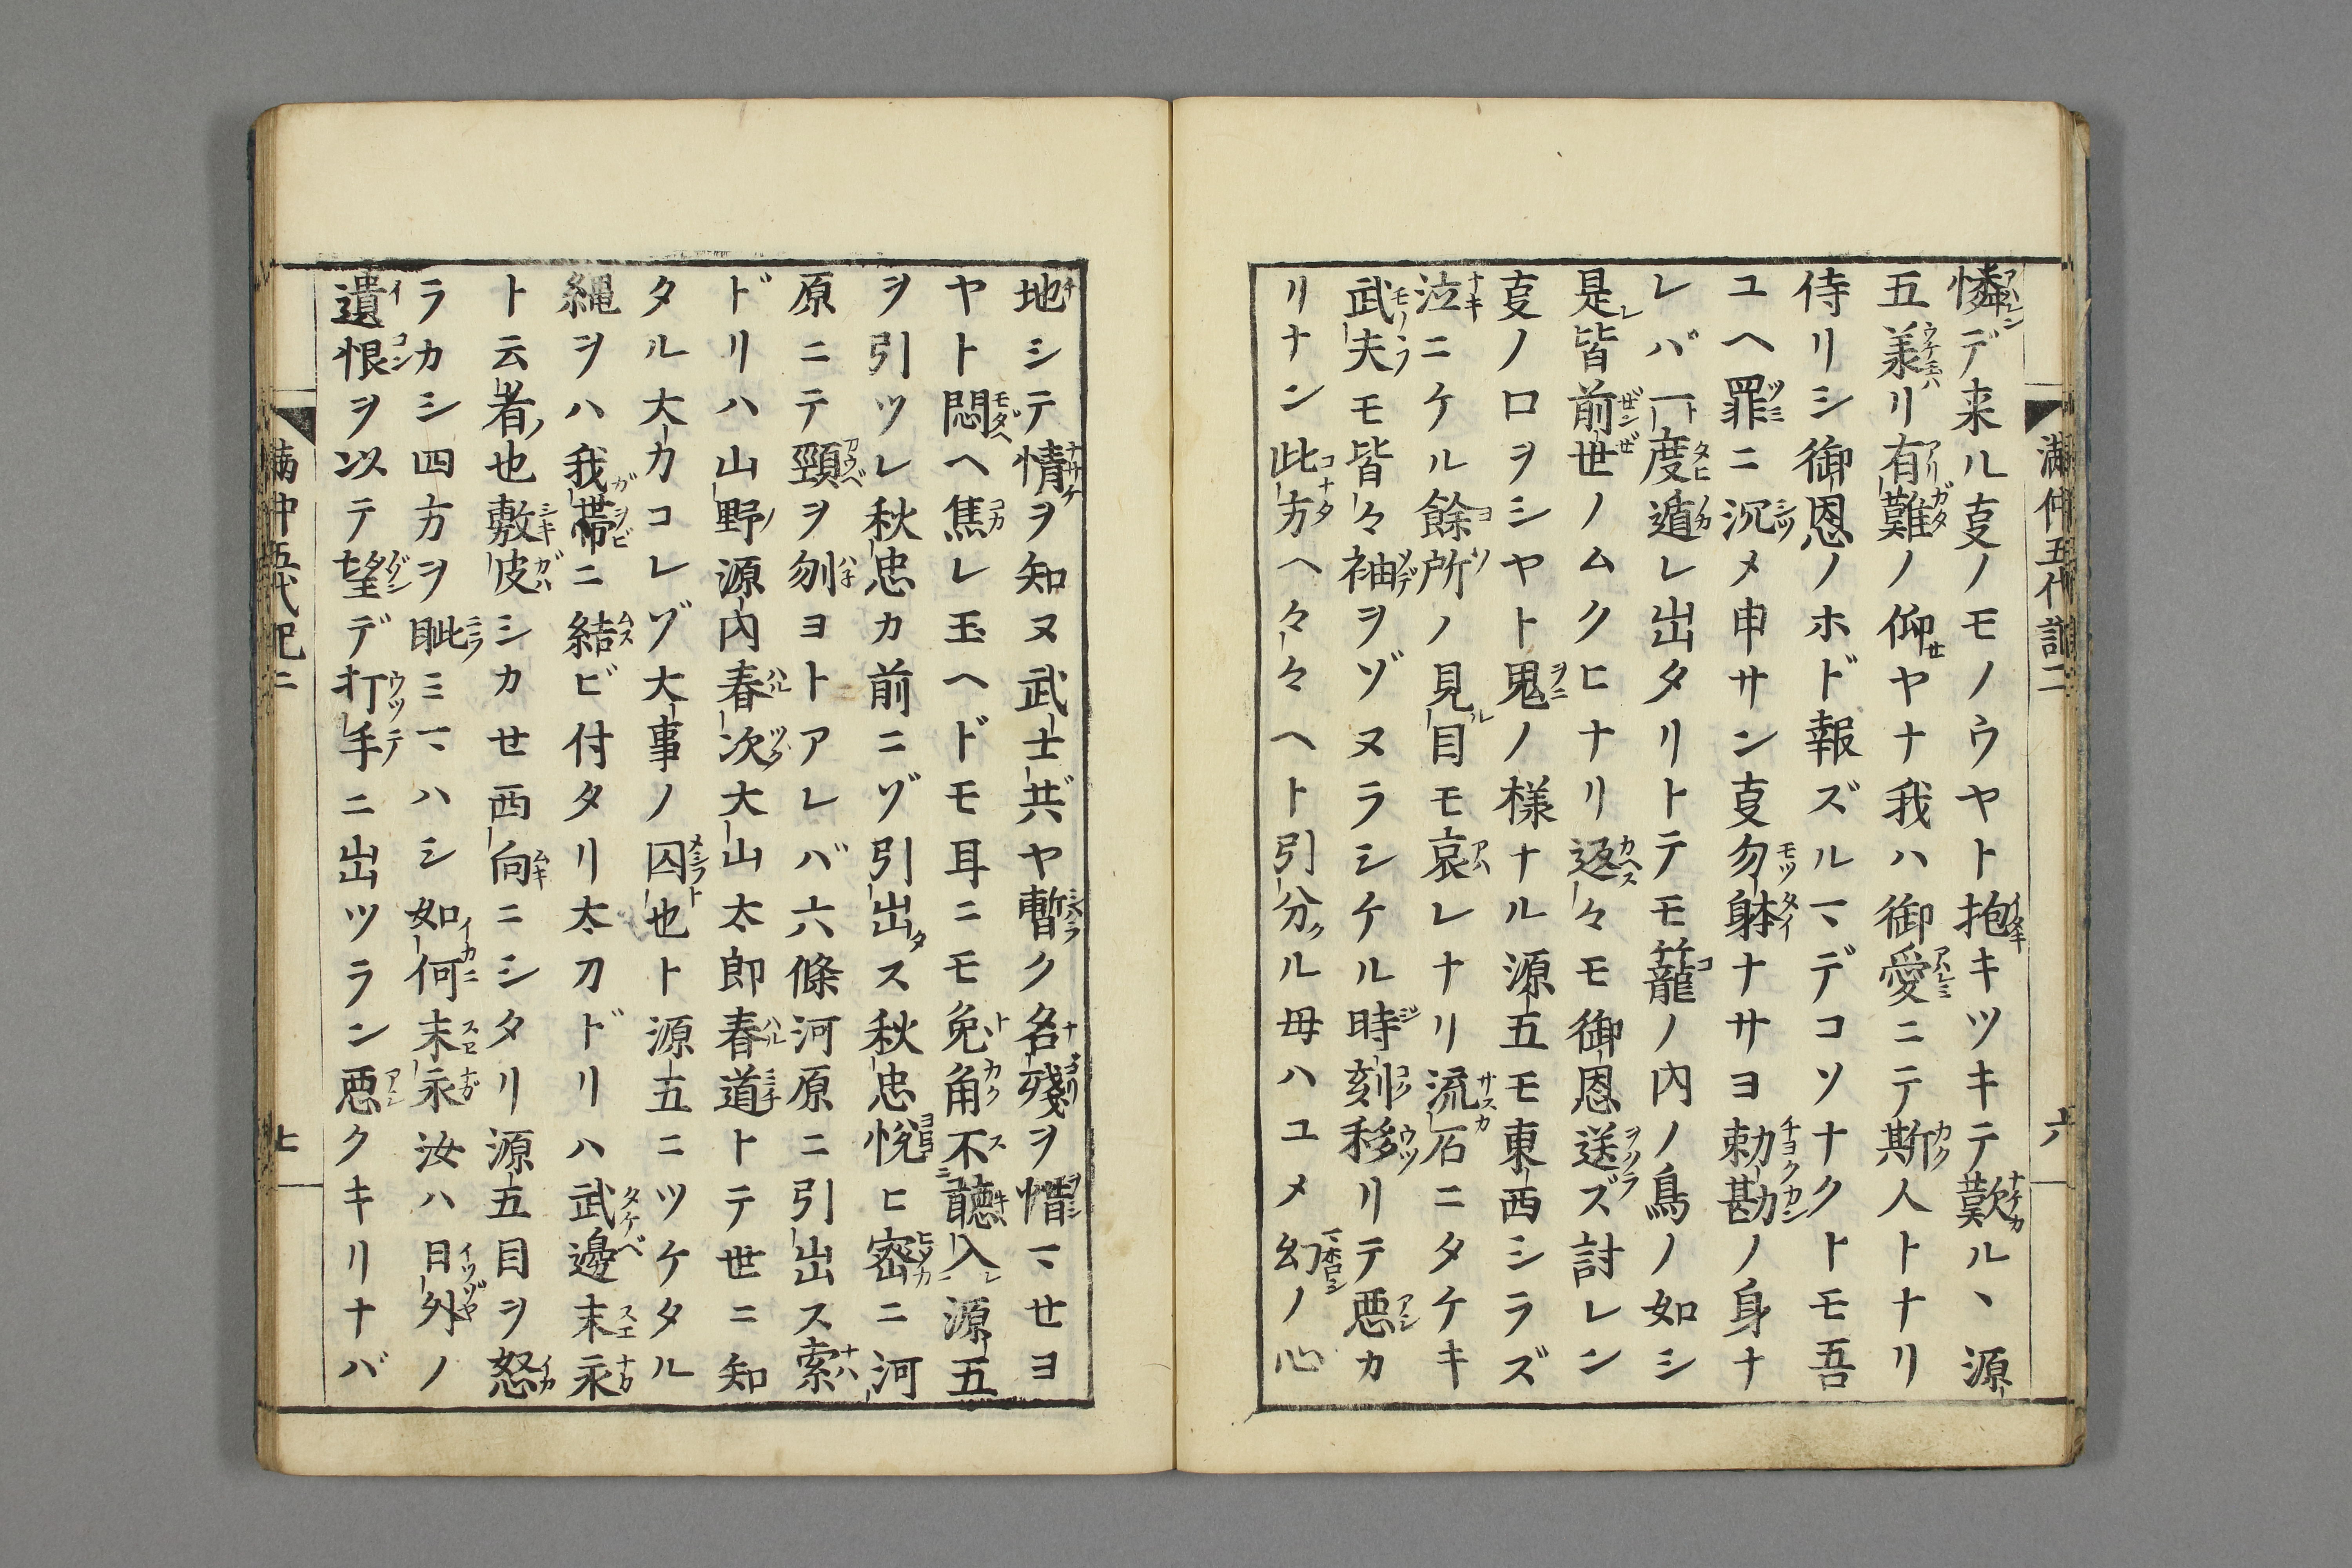 満仲五代記二 六
憐デ来ル㕝ノモノウヤト抱キツキテ歎ル丶源
五羕リ有難ノ仰ヤナ我ハ御愛ニテ斯人トナリ
侍リシ御恩ノホド報ズルマデコソナクトモ吾
ユヘ罪ニ沉メ申サン㕝勿躰ナサヨ勅勘ノ身ナ
レバ一度遁レ出タリトテモ籠ノ内ノ鳥ノ如シ
是皆前世ノムクヒナリ返々モ御恩送ズ討レン
㕝ノ口ヲシヤト鬼ノ様ナル源五モ東西シラズ
泣ニケル餘所ノ見目モ哀レナリ流石ニタケキ
武夫モ皆々袖ヲゾヌラシケル時刻移リテ悪カ
リナン此方ヘ々々ヘト引分ル母ハユメ幻ノ心
地シテ情ヲ知ヌ武士共ヤ暫ク名殘ヲ惜マセヨ
ヤト悶ヘ焦レ玉ヘドモ耳ニモ兔角不聽入源五
ヲ引ツレ秋忠カ前ニゾ引出ス秋忠悦ヒ密ニ河
原ニテ頸ヲ刎ヨトアレバ六條河原ニ引出ス索
ドリハ山野源内春次大山太郎春道トテ世ニ知
タル大カコレゾ大事ノ囚也ト源五ニツケタル
縄ヲハ我帯ニ結ビ付タリ太刀ドリハ武邊末永
ト云者也敷皮シカせ西向ニシタリ源五目ヲ怒
ラカシ四方ヲ眦ミマハシ如何末永汝ハ日外ノ
遺恨ヲ以テ望デ打手ニ出ツラン悪クキリナバ
満仲五代記二 七